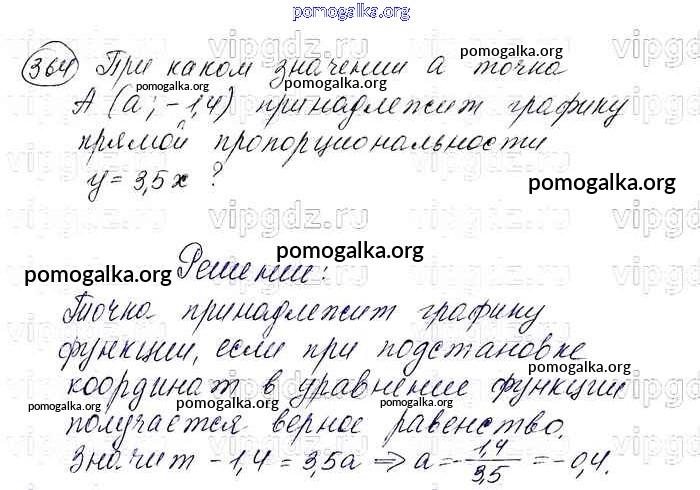 pomogalka.org
364 При каком значении a точка
pomogalka.org
pomogalka.org
A (a; -1,4) принадлежит графику
прямой пропорциональности
y = 3,5x ?
pomogalka.org
vipgdz.ru
pomogalka.org
pomogalka.org
Решение:
Точка принадлежит графику
функции, если при подстановке
pomogalka.org
координат в уравнение функции
pomogalka.org
pomogalka.org
pomogalka.org
получается верное равенство.
Значит -1,4 = 3,5a ⇒ a = -1,4/3,5 = -0,4.